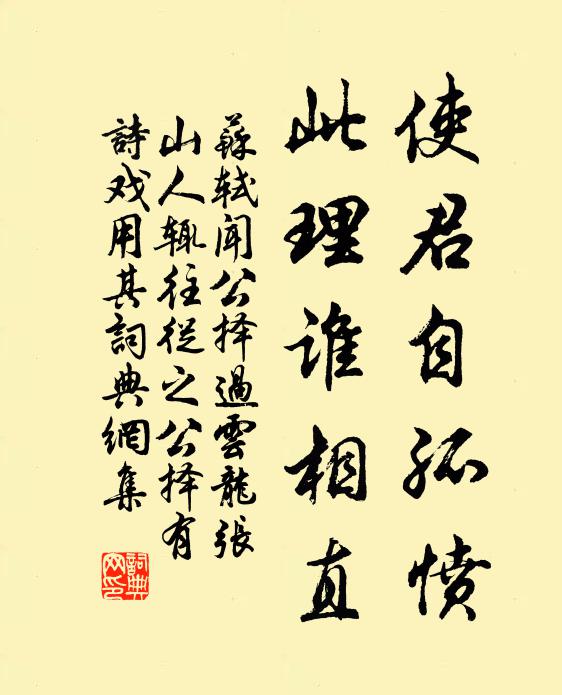 使君自孤憤
此理誰相直
蘇轼闻公择過雲龍張
山人辄往從之公择有
詩戏用其詞典網集
詞典
网印